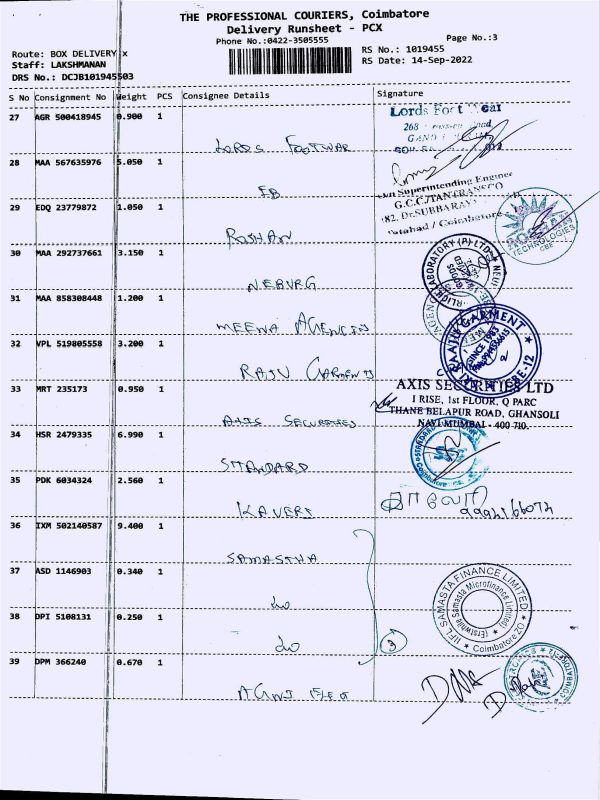 THE PROFESSIONAL COURIERS, Coimbatore
Delivery Runsheet - PCX
Phone No.:0422-3505555
Page No.:3
Route: BOX DELIVERY x
RS No.: 1019455
Staff: LAKSHMANAN
RS Date: 14-Sep-2022
DRS No.: DCJB101945503
S No Consignment No Weight PCS Consignee Details Signature
27 AGR 500418945 0.900 1
Lords Foot
268
LORDS FOOTWAR
28 MAA 567635976 5.050 1
EB
Superintending Enginee
G.C.C/TANTRANSCO
182, Dr.SUBBARAYA
/ Coimbatore
29 EDQ 23779872 1.050 1
ROSHAN
TECHNOLOGIES
CBE
30 MAA 292737661 3.150 1
NEBURG
LABORATORY (P) LTD
31 MAA 858308448 1.200 1
MEENA AGENCIES
32 VPL 519805558 3.200 1
RAJU GARMENTS
GARMENT
SINCE 1983
33 MRT 235173 0.950 1
AXIS SECURITIES
AXIS SECURITIES LTD
I RISE, 1st FLOOR, Q PARC
THANE BELAPUR ROAD, GHANSOLI
NAVI MUMBAI - 400 710.
34 HSR 2479335 6.990 1
STANDARD
STANDARD
Coimbatore
35 PDK 6034324 2.560 1
KAVERI
காவேரி
36 IXM 502140587 9.400 1
SAMASTHA
37 ASD 1146903 0.340 1
do
38 DPI 5108131 0.250 1
do
3
IIFL SAMASTA FINANCE LIMITED
(Erstwhile Samasta Microfinance Limited)
Coimbatore ZO
39 DPM 366240 0.670 1